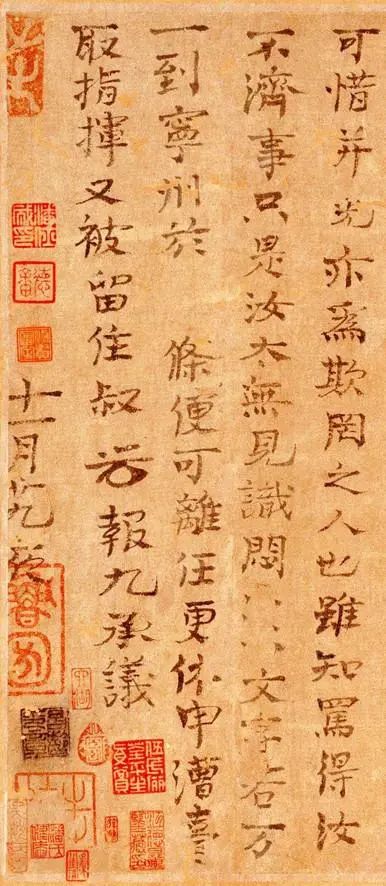 可惜并光亦爲欺罔之人也雖知罵得汝
不濟事只是汝太無見識悶 文字若万
一到寧州於 條便可離任更休申漕臺
取指揮又被留住叔光報九承議
十一月廿九夜